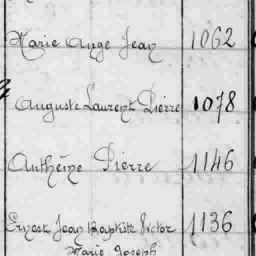 Marie Ange Jean 1062
Auguste Laurent Pierre 1078
Anthême Pierre 1146
Ernest Jean Baptiste Victor 1136
Marie Joseph